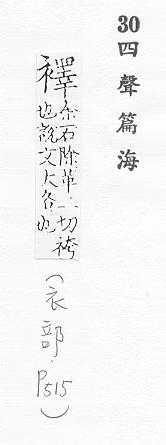 30四聲篇海
襗余石除革二切袴
也說文大各也
(衣部.P515)